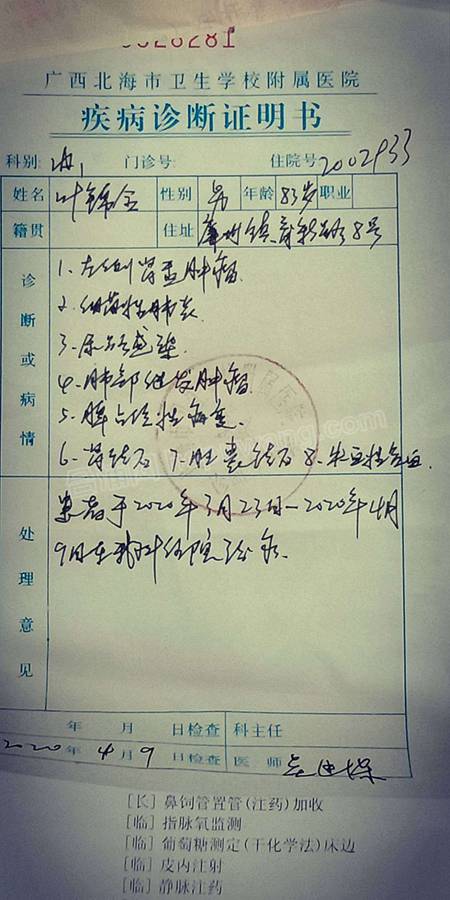 0028281
广西北海市卫生学校附属医院
疾病诊断证明书
科别: 内1 门诊号: 住院号: 2002933
姓名 叶锦全 性别 男 年龄 83岁 职业
籍贯 住址 廉州镇 路8号
诊断或病情
1. 左侧肾盂肿瘤
2. 细菌性肺炎
3. 尿路感染
4. 肺部继发肿瘤
5. 脾占位性病变
6. 肾结石 7. 胆囊结石 8. 失血性贫血.
处理意见
患者于2020年3月23日—2020年4月
9日在我科住院治疗.
年 月 日检查 科主任
2020年4月9日检查 医师
[长] 鼻饲管置管(注药)加收
[临] 指脉氧监测
[临] 葡萄糖测定(干化学法)床边
[临] 皮内注射
[临] 静脉注药